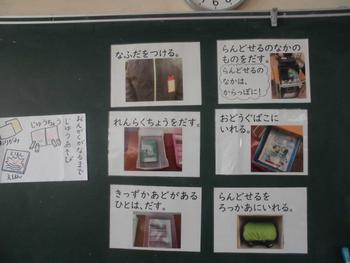 なふだをつける。
れんらくちょうをだす。
きっずかあどがある
ひとは、だす。
らんどせるのなかの
ものをだす。
らんどせるの
なかは、
からっぽに!
おどうぐばこに
いれる。
らんどせるを
ろっかあにいれる。
おんがくがなるまで
じゆうあそび
じゆうちょう